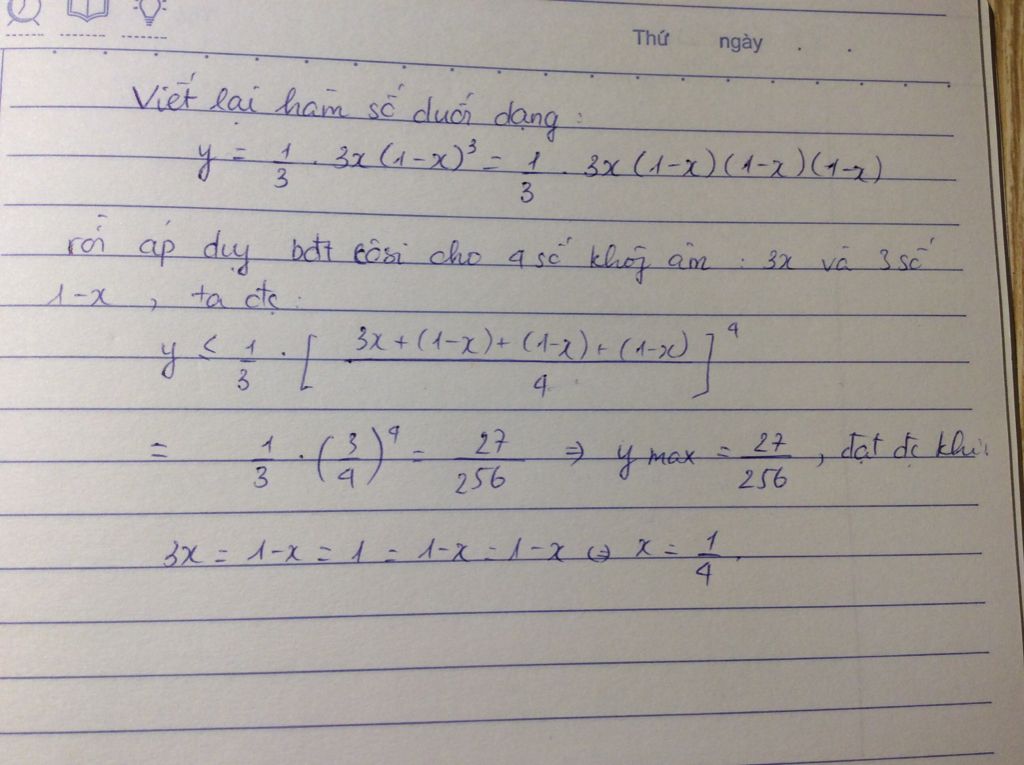 Thứ ngày . .
Viết lại hàm số dưới dạng :
y = 1/3 . 3x(1-x)³ = 1/3 . 3x(1-x)(1-x)(1-x)
rồi áp dụg bđt côsi cho 4 số khôg âm : 3x và 3 số
1-x , ta đc :
y ≤ 1/3 . [ (3x+(1-x)+(1-x)+(1-x))/4 ]⁴
= 1/3 . (3/4)⁴ = 27/256 ⇒ y max = 27/256 , đạt đc khi:
3x = 1-x = 1 = 1-x = 1-x ⇔ x = 1/4 .